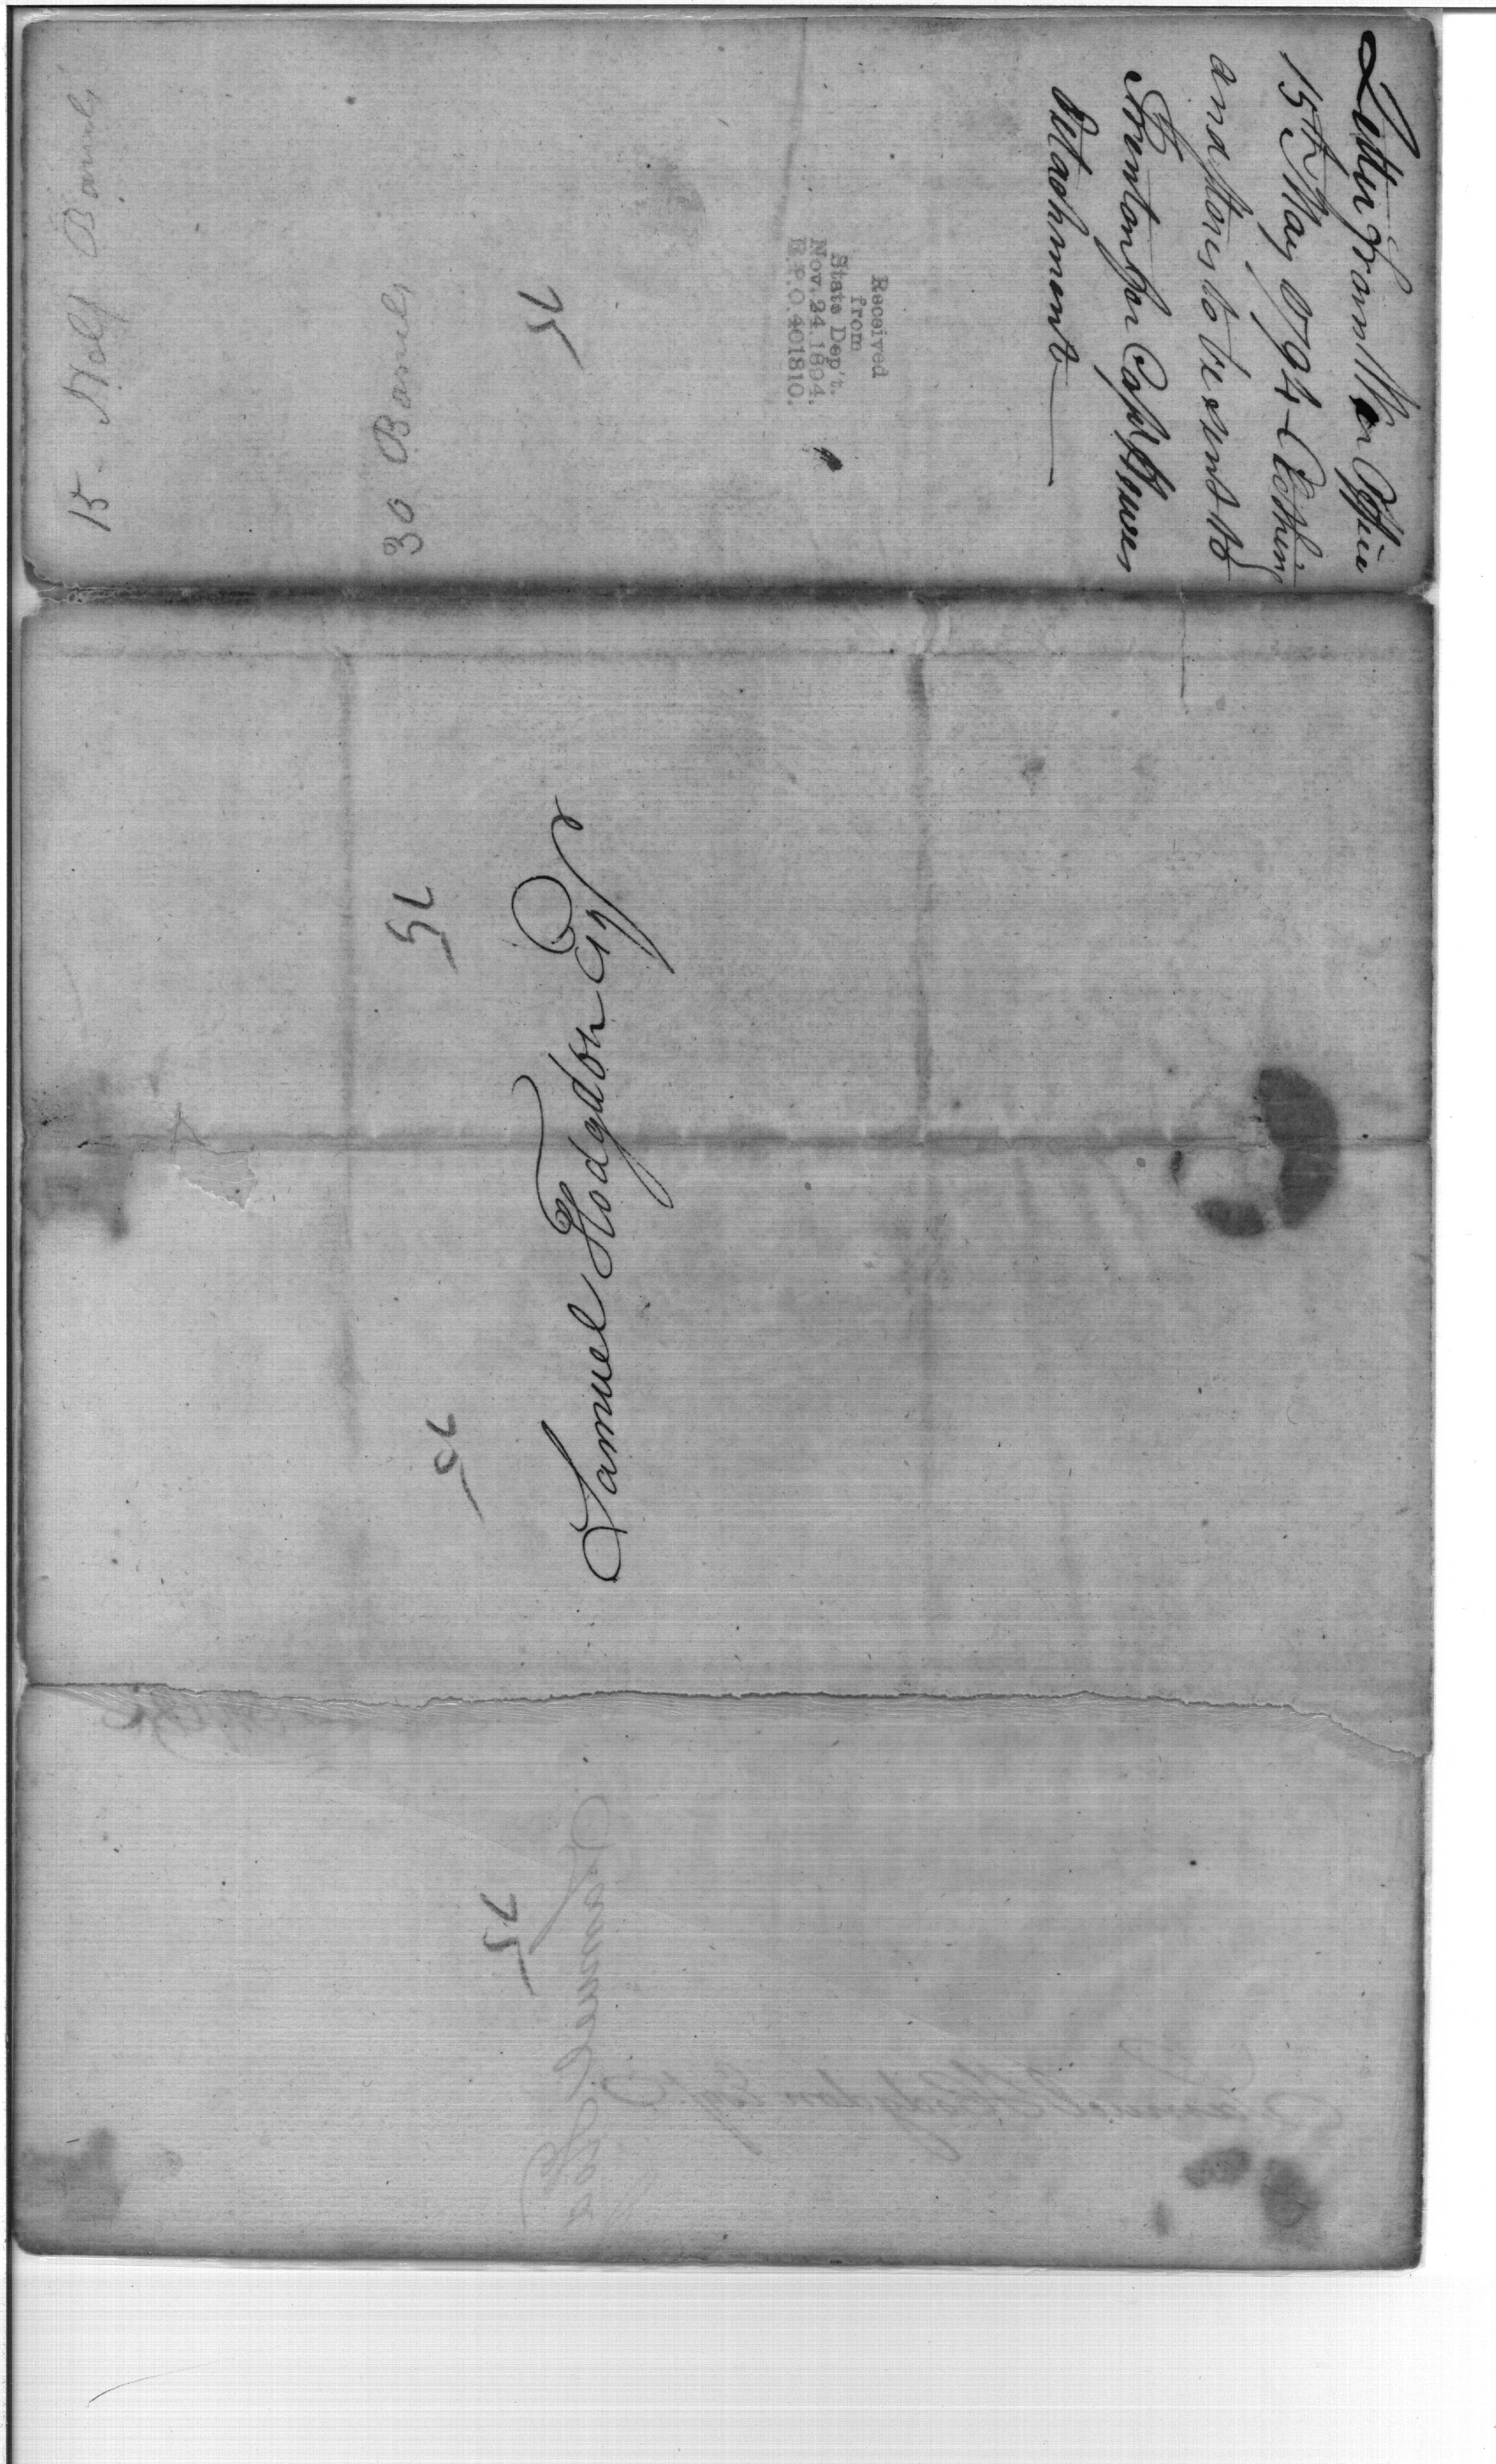 Letter from War Office
15th May 1794 - Clothing
and Stores to be sent to
Trenton for Capt
Detachment
Received
from
State Dep't.
Nov. 24 1894.
R.P.O. 401810.
30 Barrels
15 - Half Barrels
Samuel Hodgdon Esqr